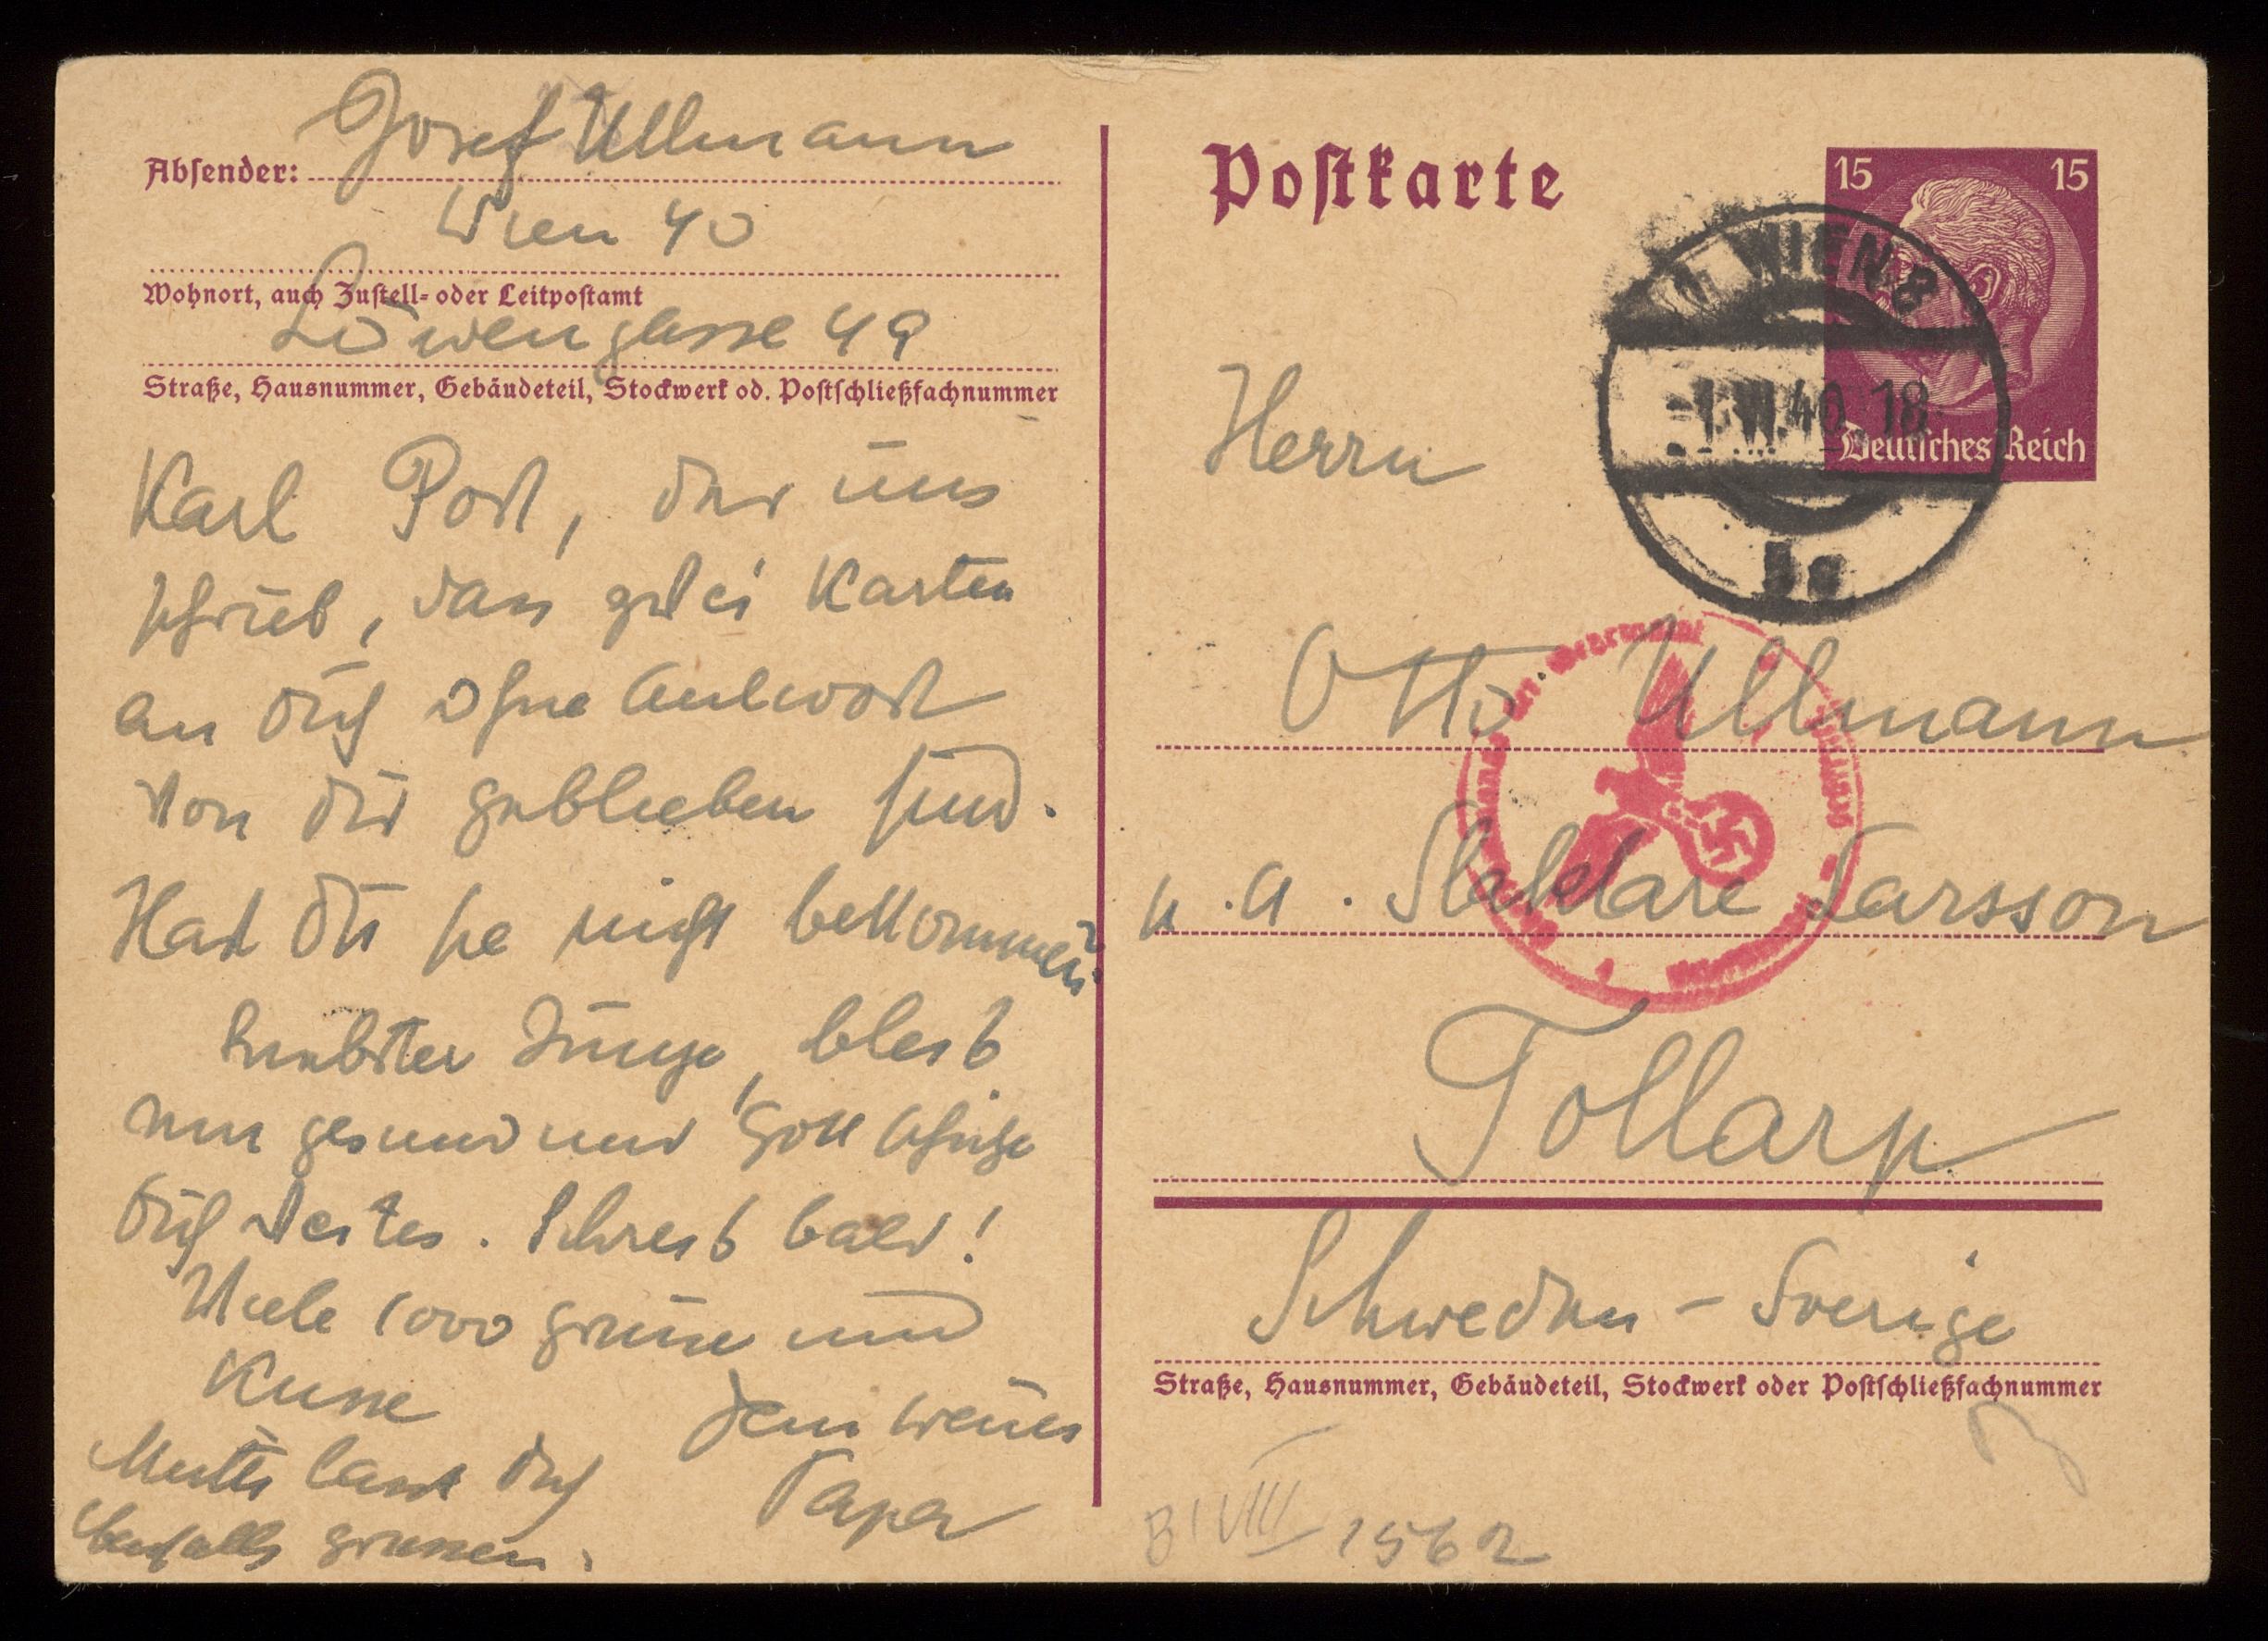 Josef Ullmann
Absender:
Wien 40
Wohnort, auch Zustell- oder Leitpostamt
Löwengasse 49
Straße, Hausnummer, Gebäudeteil, Stockwerk od. Postschließfachnummer
Karl Post, der uns
schrieb, dass Karten
an dich ohne Antwort
von dir geblieben sind.
Hast du sie nicht bekommen?
Liebster Junge, bleib
nur gesund und Gott
dich weiters. Schreib bald!
Viele 1000 Grüsse und
Küsse
dein
Papa
Mutti lässt dich
ebenfalls grüssen.
Postkarte
15 15
Deutsches Reich
WIEN 8
40.18
Herrn
Otto Ullmann
Larsson
Tollarp
Schweden - Sverige
Straße, Hausnummer, Gebäudeteil, Stockwerk oder Postschließfachnummer
1562